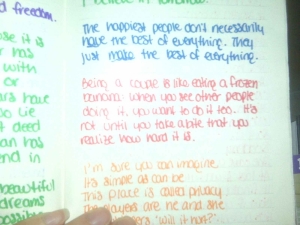 d freedom.
se it is
r has
with
or
ars have
so lie
t deed
an has
end in
beautiful
dreams
possible
I believe in tomorrow.
The happiest people don't necessarily
have the best of everything. They
just make the best of everything.
Being a couple is like eating a frozen
banana- when you see other people
doing it, you want to do it too.. It's
not until you take a bite that you
realize how hard it is.
I'm sure you can imagine
It's simple as can be
This place is called privacy
The players are me and she
"Will it hurt?"